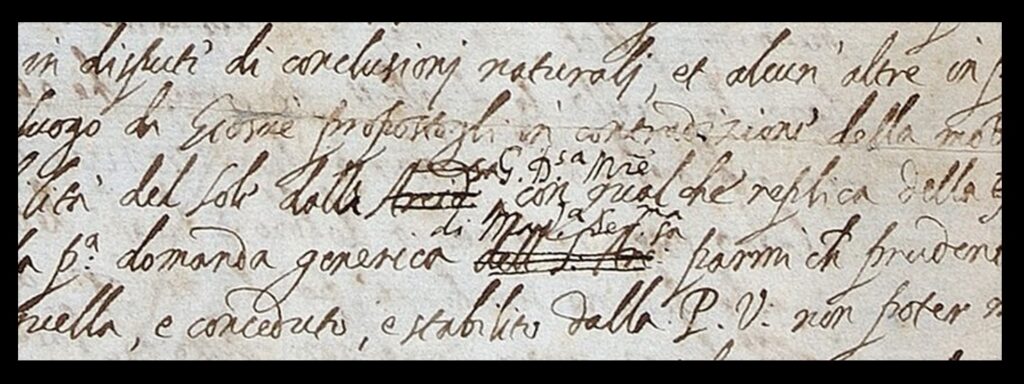 in dispute di conclusionj naturalj, et alcun' altre in
luogo di Giosuè propostogli in contradizione della mob
lità del Sole dalla
G. D.sa Mre
con qualche replica della
di Mad.a Ser.ma
la p.a domanda generica parmi ch prudent
uella, e conceduto, e stabilito dalla P. V. non poter